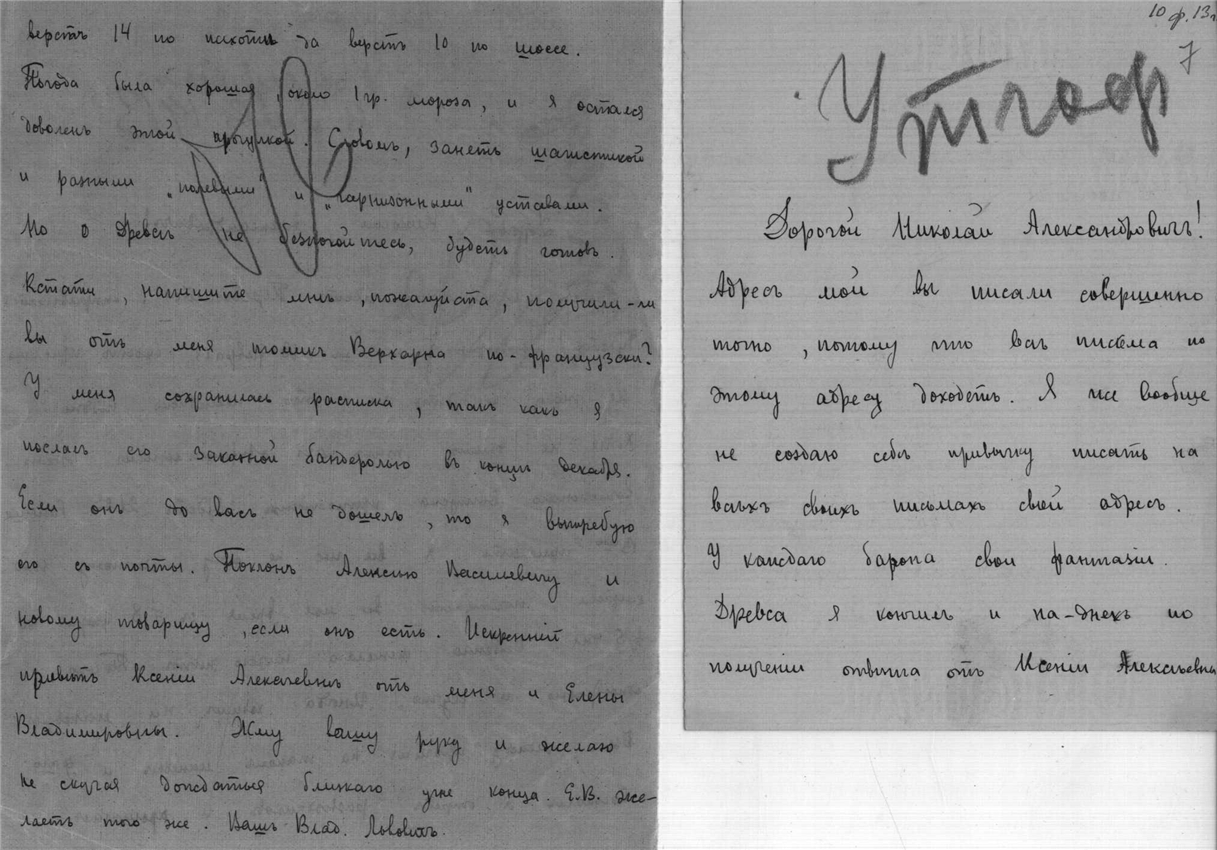 верстъ 14 по пихоти да верстъ 10 по шоссе.
Погода была хорошая, около 1 гр. мороза, и я остался
доволенъ этой прогулкой. Словомъ, занетъ шагистикой
и разными „полевыми“ и „гарнизонными“ уставами.
Но о Древсѣ не безпокойтесь, будетъ готовъ.
Кстати, напишите мнѣ, пожалуйста, получили-ли
вы отъ меня томикъ Верхарна по-французски?
У меня сохранилась расписка, такъ какъ я
послалъ его заказной бандеролью въ концѣ декабря.
Если онъ до васъ не дошелъ, то я вытребую
его съ почты. Поклонъ Алексѣю Васильевичу и
новому товарищу, если онъ есть. Искренній
привѣтъ Ксеніи Алексѣевнѣ отъ меня и Елены
Владимировны. Жму вашу руку и желаю
не скучая дождаться близкаго уже конца. Е.В. же-
лаетъ того же. Вашъ Влад. Львовичъ.
10 ф. 13 г.
7
Утгоф
Дорогой Николай Александровичъ!
Адресъ мой вы писали совершенно
точно, потому что ваши письма по
этому адресу доходятъ. Я же вообще
не создаю себѣ привычку писать на
всѣхъ своихъ письмахъ свой адресъ.
У каждаго барона свои фантазіи.
Древса я кончилъ и на-дняхъ по
полученіи отвѣта отъ Ксеніи Алексѣевны